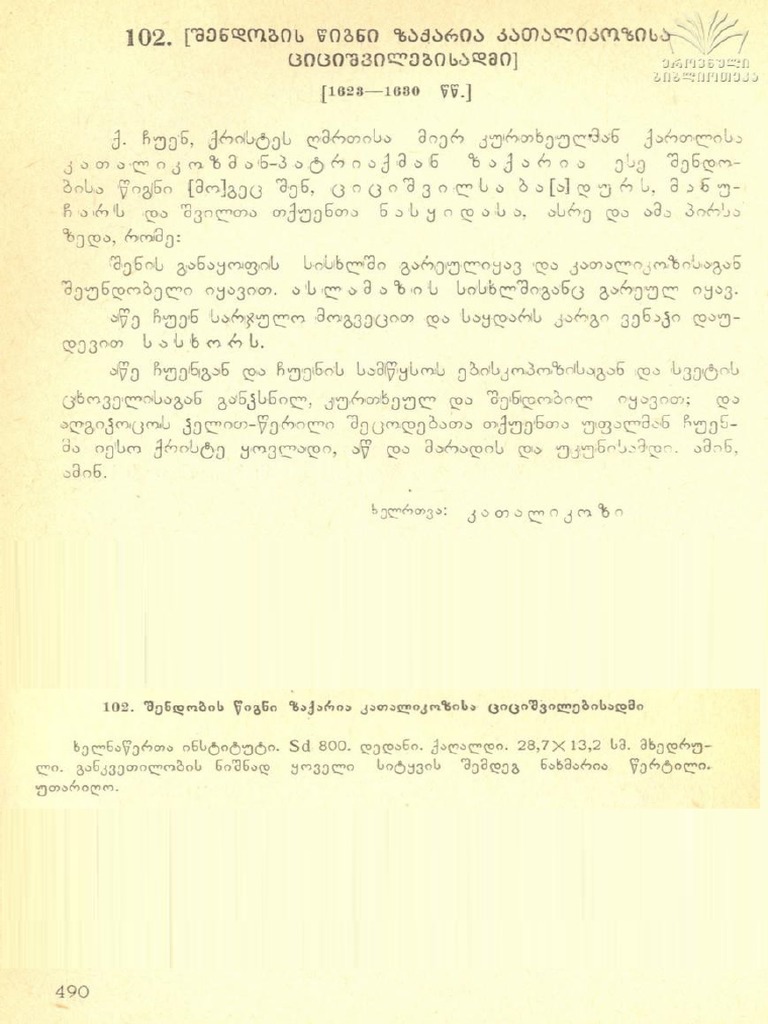 102. [შენდობის წიგნი ზაქარია კათალიკოზისა
ციციშვილებისადმი]
ეროვნული
ბიბლიოთეკა
[1623—1630 წწ.]
ქ. ჩუენ, ქრისტეს ღმრთისა მიერ კურთხეულმან ქართლისა
კათალიკოზმან-პატრიაქმან ზაქარია ესე შენდო-
ბისა წიგნი [მო]გეც შენ, ციციშვილსა ბა[ა]დურს, მანუ-
ჩარს და შვილთა თქუენთა ნასყიდასა, ასრე და ამა პირსა
ზედა, რომე:
შენის განაყოფის სისხლში გარეულიყავ და კათალიკოზისაგან
შეუნდობელი იყავით. ასლამაზის სისხლშიგანც გარეულ იყავ.
აწე ჩუენ სარჯულო მოგვეცით და საყდარს კარგი ვენაჴი დაუ-
დევით სასხორს.
აწე ჩუენგან და ჩუენის სამწყსოს ებისკოპოზისაგან და სვეტის
ცხოველისაგან განჴსნილ, კურთხეულ და შენდობილ იყავით; და
აღგიჴოცოს ჴელით-წერილი შეცოდებათა თქუენთა უფალმან ჩუენ-
მა იესო ქრისტე ყოვლადი, აწ და მარადის და უკუნისამდი. ამინ,
ამინ.
ხელრთვა: კათალიკოზი
102. შენდობის წიგნი ზაქარია კათალიკოზისა ციციშვილებისადმი
ხელნაწერთა ინსტიტუტი. Sd 800. დედანი. ქაღალდი. 28,7×13,2 სმ. მხედრუ-
ლი. განკვეთილობის ნიშნად ყოველი სიტყვის შემდეგ ნახმარია წერტილი.
უთარიღო.
490